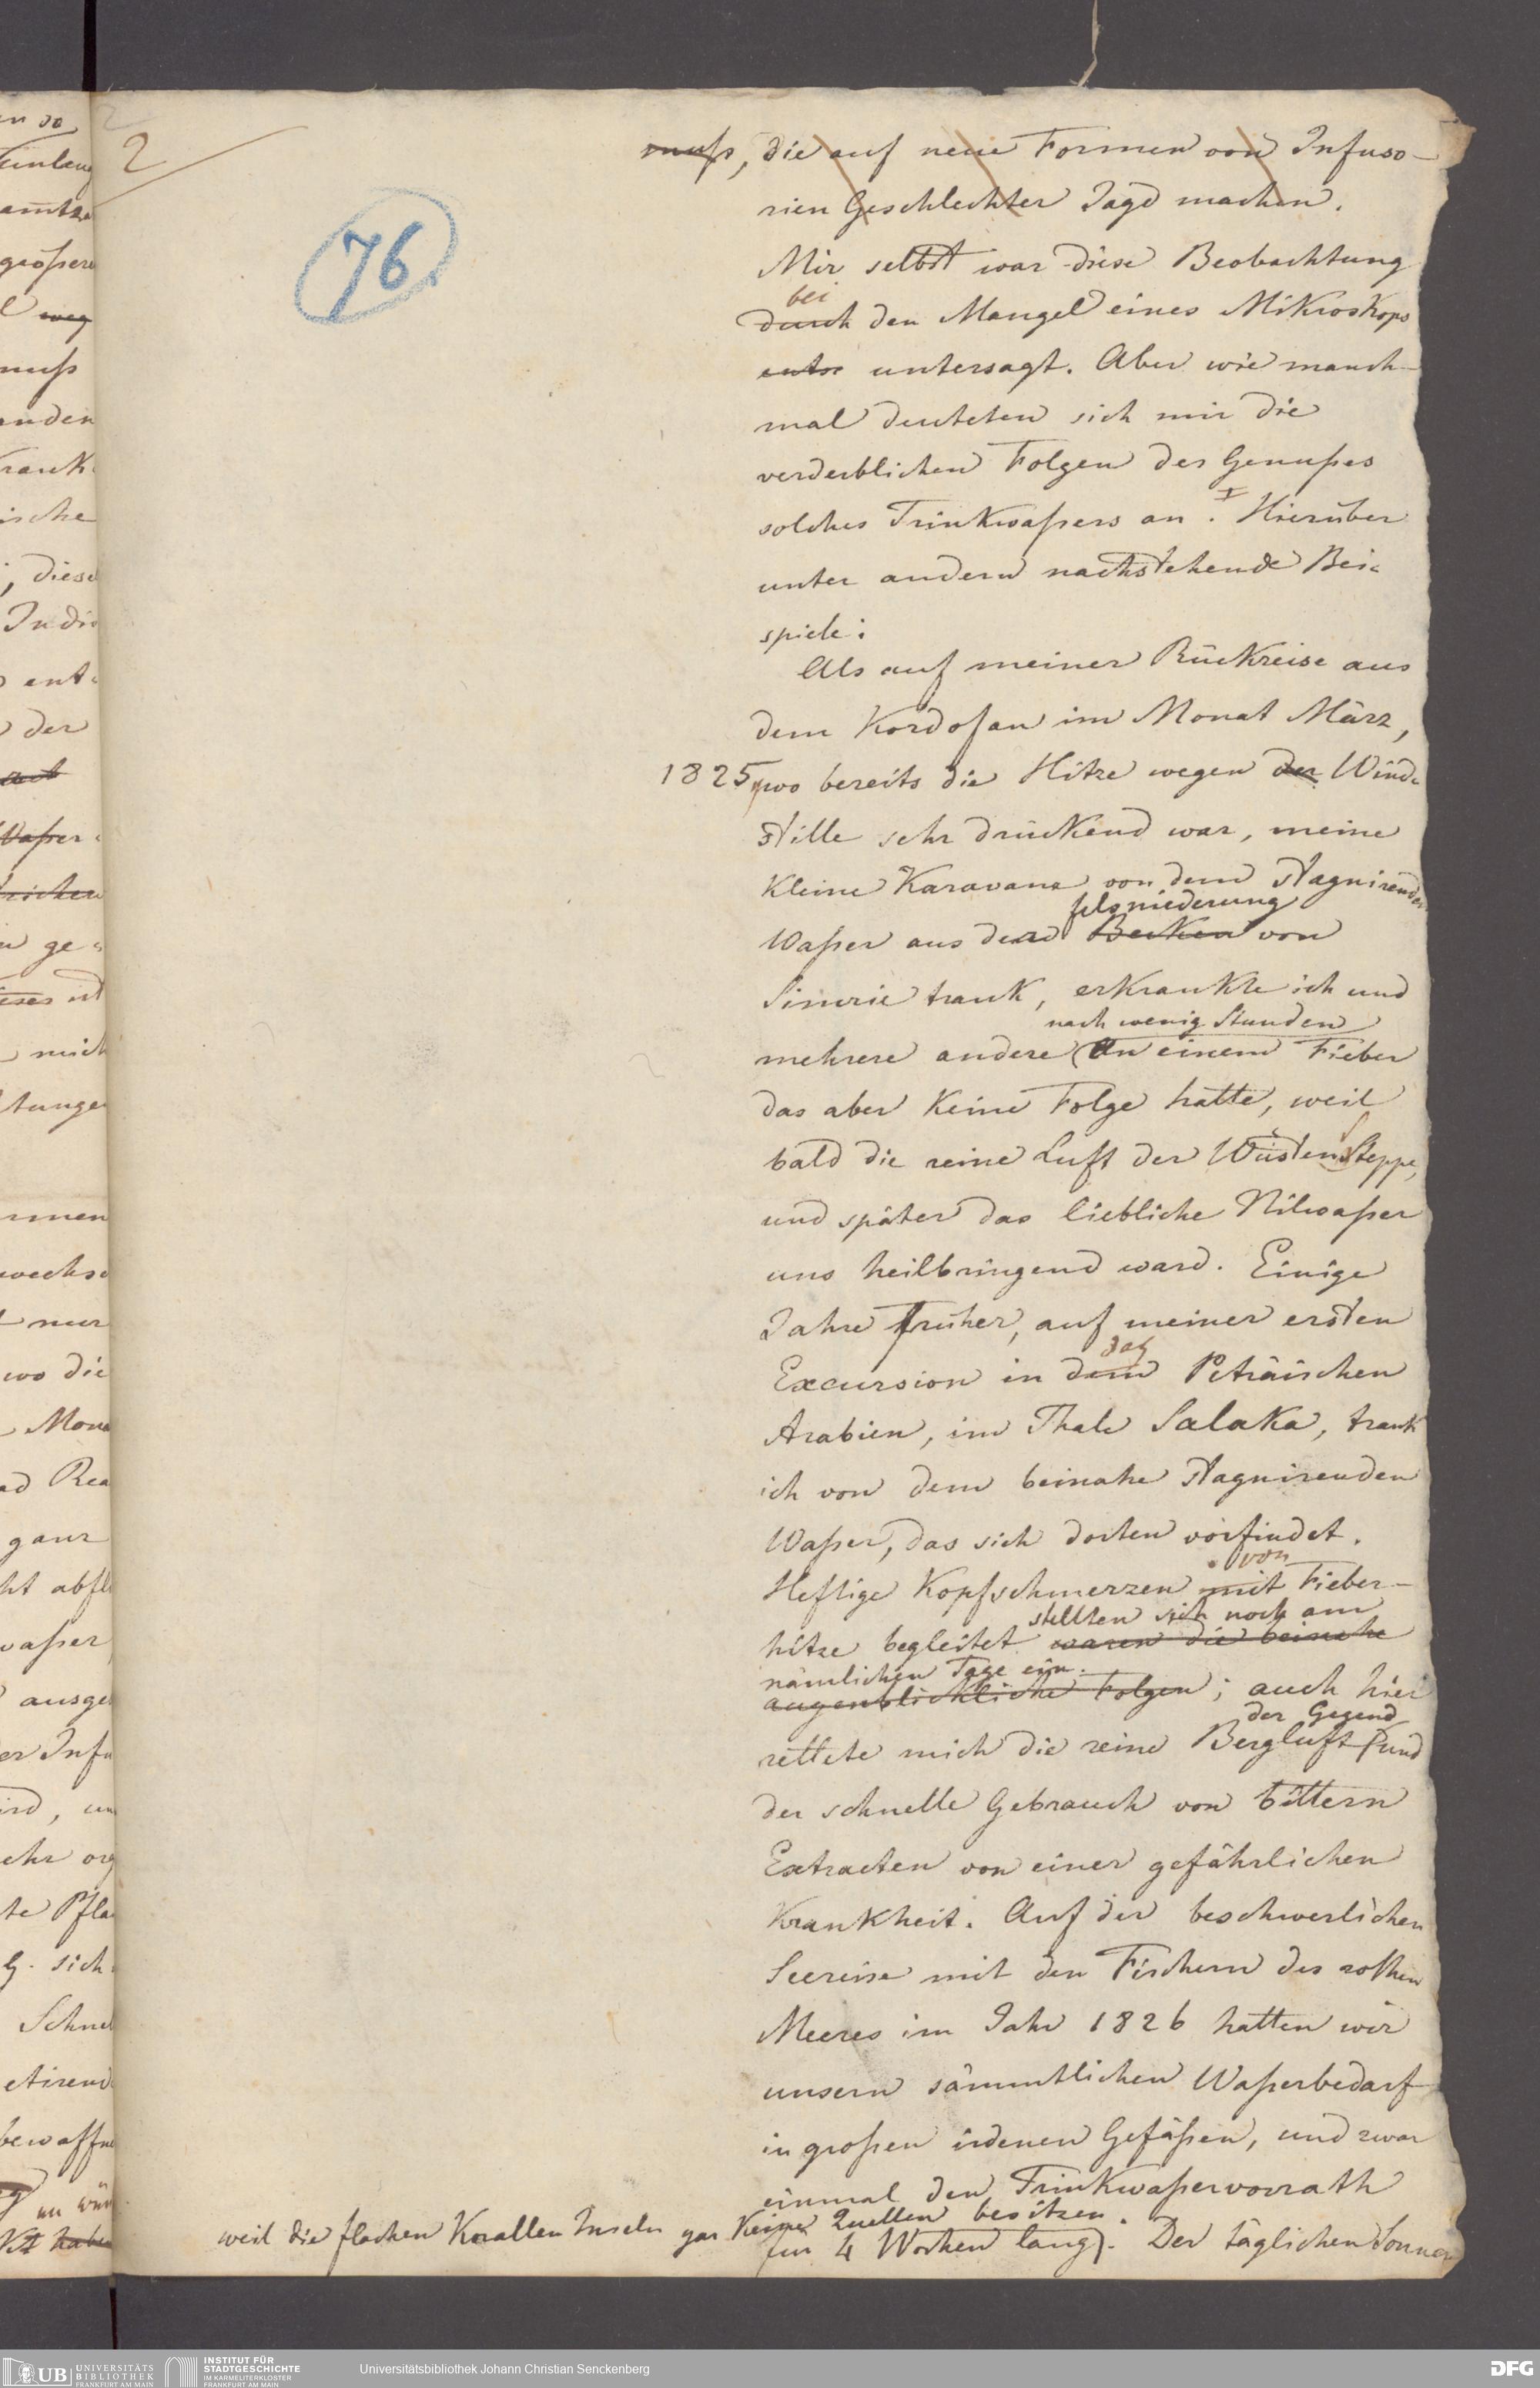 2
76
muß, die auf neue Formen von Infuso-
rien Geschlechter Jagd machen.
Mir selbst war diese Beobachtung
bei
durch den Mangel eines Mikroskops
untersagt. Aber wie manch-
mal deuteten sich mir die
verderblichen Folgen des Genußes
solches Trinkwaßers an. Hierüber
unter andern nachstehende Bei-
spiele:
Als auf meiner Rückreise aus
dem Kordofan im Monat März,
1825, wo bereits die Hitze wegen der Wind-
stille sehr drückend war, meine
kleine Karavane von dem stagnirenden
felsniederung
Waßer aus der Becken von
Simrie trank, erkrankte ich und
nach wenig Stunden
mehrere andere an einem Fieber
das aber keine Folge hatte, weil
bald die reine Luft der Wüstensteppe,
und später das liebliche Nilwaßer
uns heilbringend ward. Einige
Jahre früher, auf meiner ersten
das
Excursion in dem Peträischen
Arabien, im Thale Salaka, trank
ich von dem beinahe stagnirenden
Waßer, das sich dorten vorfindet.
von
Heftige Kopfschmerzen mit Fieber-
stellten sich noch am
hitze begleitet waren die beinahe
nämlichen Tage ein.
augenblickliche Folgen; auch hier
der Gegend
rettete mich die reine Bergluft und
der schnelle Gebrauch von bittern
Extracten von einer gefährlichen
Krankheit. Auf der beschwerlichen
Seereise mit den Fischern des rothen
Meeres im Jahr 1826 hatten wir
unsern sämmtlichen Waßerbedarf
in großen irdenen Gefäßen, und zwar
einmal den Trinkwaßervorrath
weil die flachen Korallen Inseln gar keine Quellen besitzen.
für 4 Wochen lang. Der täglichen Sonnen
UB UNIVERSITÄTS
BIBLIOTHEK
FRANKFURT AM MAIN
INSTITUT FÜR
STADTGESCHICHTE
IM KARMELITERKLOSTER
FRANKFURT AM MAIN
Universitätsbibliothek Johann Christian Senckenberg
DFG